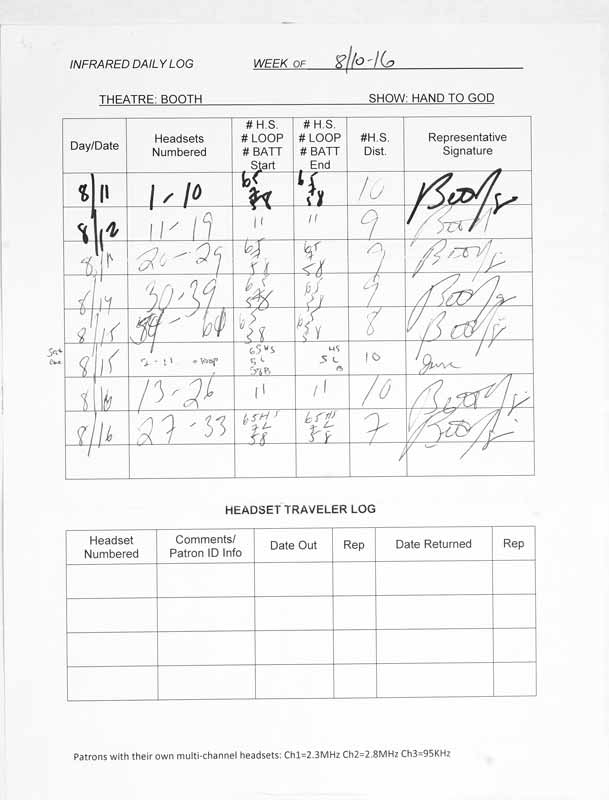 INFRARED DAILY LOG WEEK OF 8/10-16
THEATRE: BOOTH SHOW: HAND TO GOD
Day/Date Headsets Numbered # H.S. # LOOP # BATT Start # H.S. # LOOP # BATT End #H.S. Dist. Representative Signature
8/11 1-10 65 7 58 65 7 58 10
8/12 11-19 11 11 9
8/ 20-29 65 7 58 65 7 58 9
8/14 30-39 65 58 65 7 58 9
8/15 - 60 65 58 65 58 8
8/15 2-11 65HS 5L 58B HS 5L B 10 June
8/16 13-26 11 11 10
8/16 27-33 65HS 7L 58 65HS 7L 58 7
HEADSET TRAVELER LOG
Headset Numbered Comments/ Patron ID Info Date Out Rep Date Returned Rep
Patrons with their own multi-channel headsets: Ch1=2.3MHz Ch2=2.8MHz Ch3=95KHz